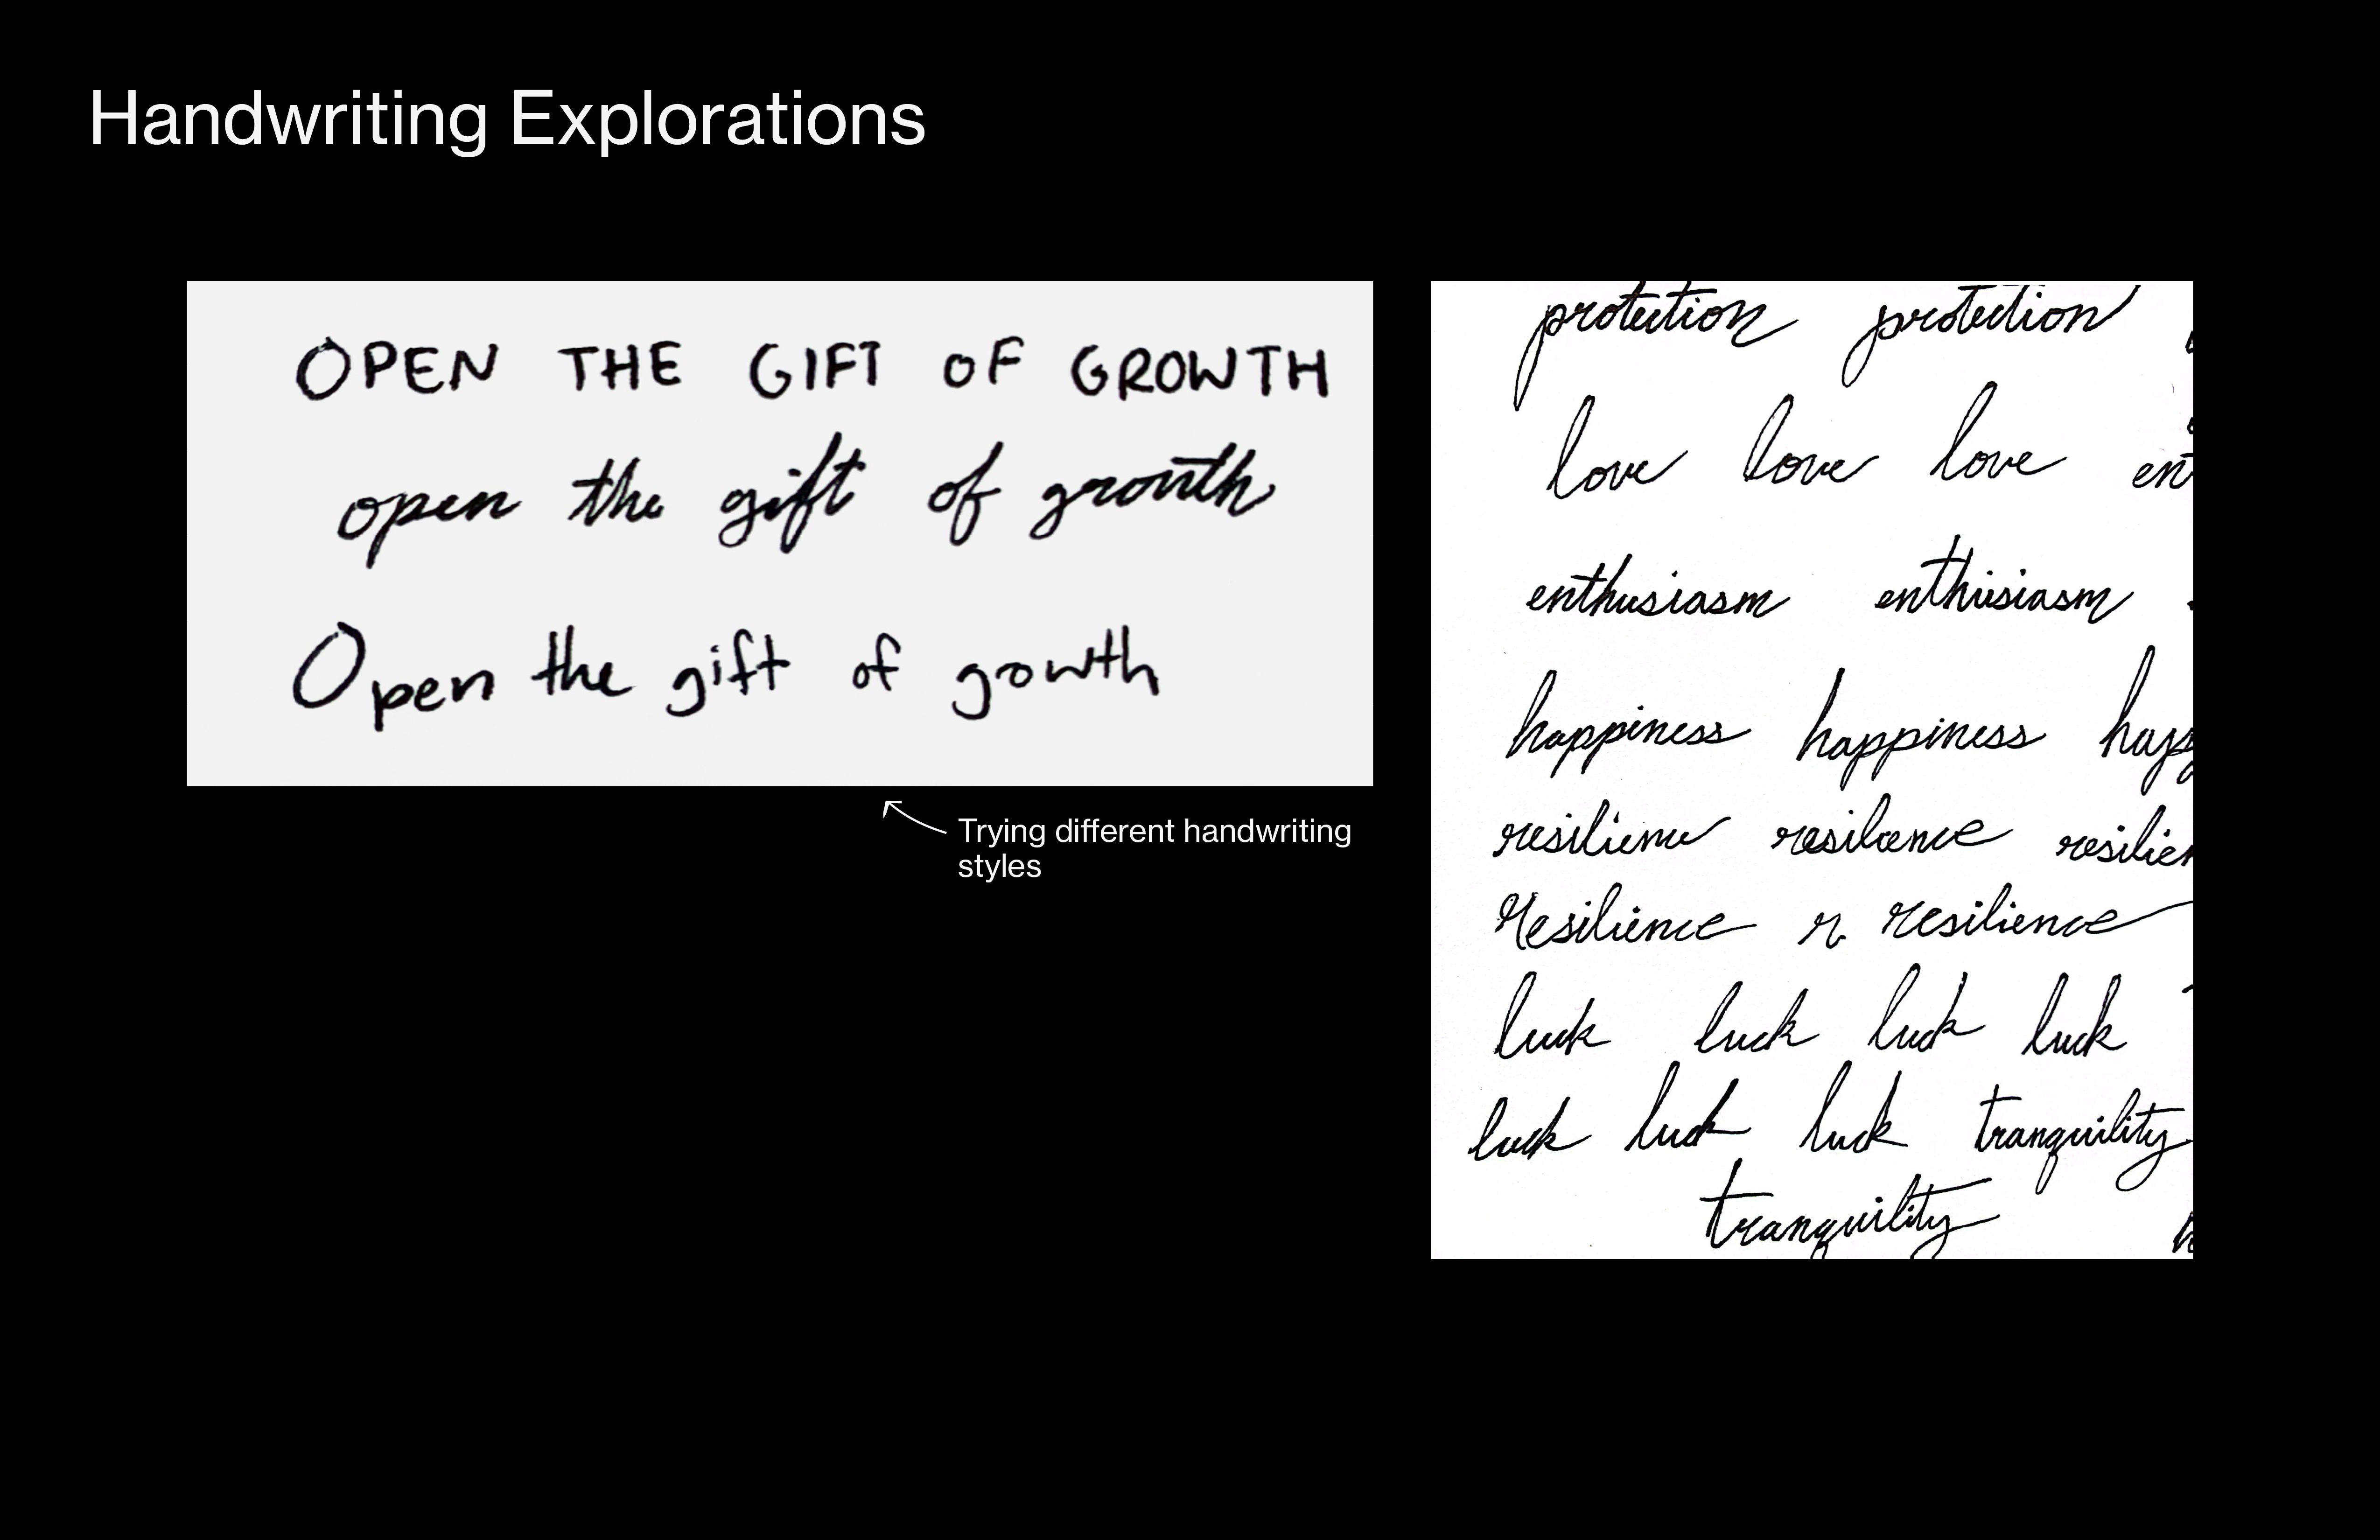 Handwriting Explorations
OPEN THE GIFT OF GROWTH
open the gift of growth
Open the gift of growth
Trying different handwriting
styles
protection protection
love love love en
enthusiasm enthusiasm
happiness happiness happ
resilience resilience resilien
resilience r resilience
luck luck luck luck
luck luck luck tranquility
tranquility